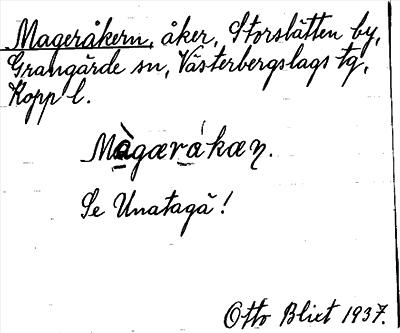 Mageråkern, åker, Storslätten by,
Grangärde sn, Västerbergslags tg,
Kopp l.
Màgærákæƞ.
Se Unatagä!
Otto Blixt 1937.